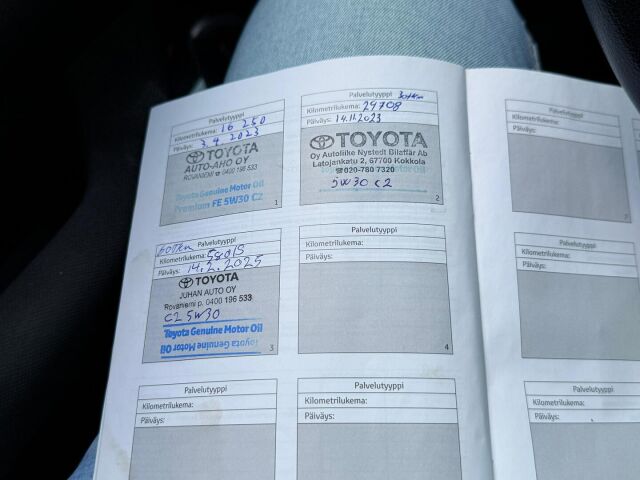 Palvelutyyppi
Kilometrilukema: 16 250
Päiväys: 3.4.2023
TOYOTA
AUTO-AHO OY
ROVANIEMI ☎ 0400 196 533
Toyota Genuine Motor Oil
Premium FE 5W30 C2
1
Palvelutyyppi 30tkm
Kilometrilukema: 29708
Päiväys: 14.11.2023
TOYOTA
Oy Autoliike Nystedt Bilaffär Ab
Latojankatu 2, 67700 Kokkola
☎020-780 7320
5W30 C2
2
60Tkm Palvelutyyppi
Kilometrilukema:
Päiväys: 14.2.2025
TOYOTA
JUHAN AUTO OY
Rovaniemi p. 0400 196 533
C2 5W30
Toyota Genuine Motor Oil
Toyota Genuine Motor Oil
3
Palvelutyyppi
Kilometrilukema:
Päiväys:
4
Palvelutyyppi
Kilometrilukema:
Päiväys:
Palvelutyyppi
Kilometrilukema:
Päiväys:
Palvelutyyppi
Kilometrilukema:
Päiväys:
Palvelutyyppi
Kilometrilukema:
Päiväys:
Palvelutyyppi
Kilometrilukema:
Päiväys: